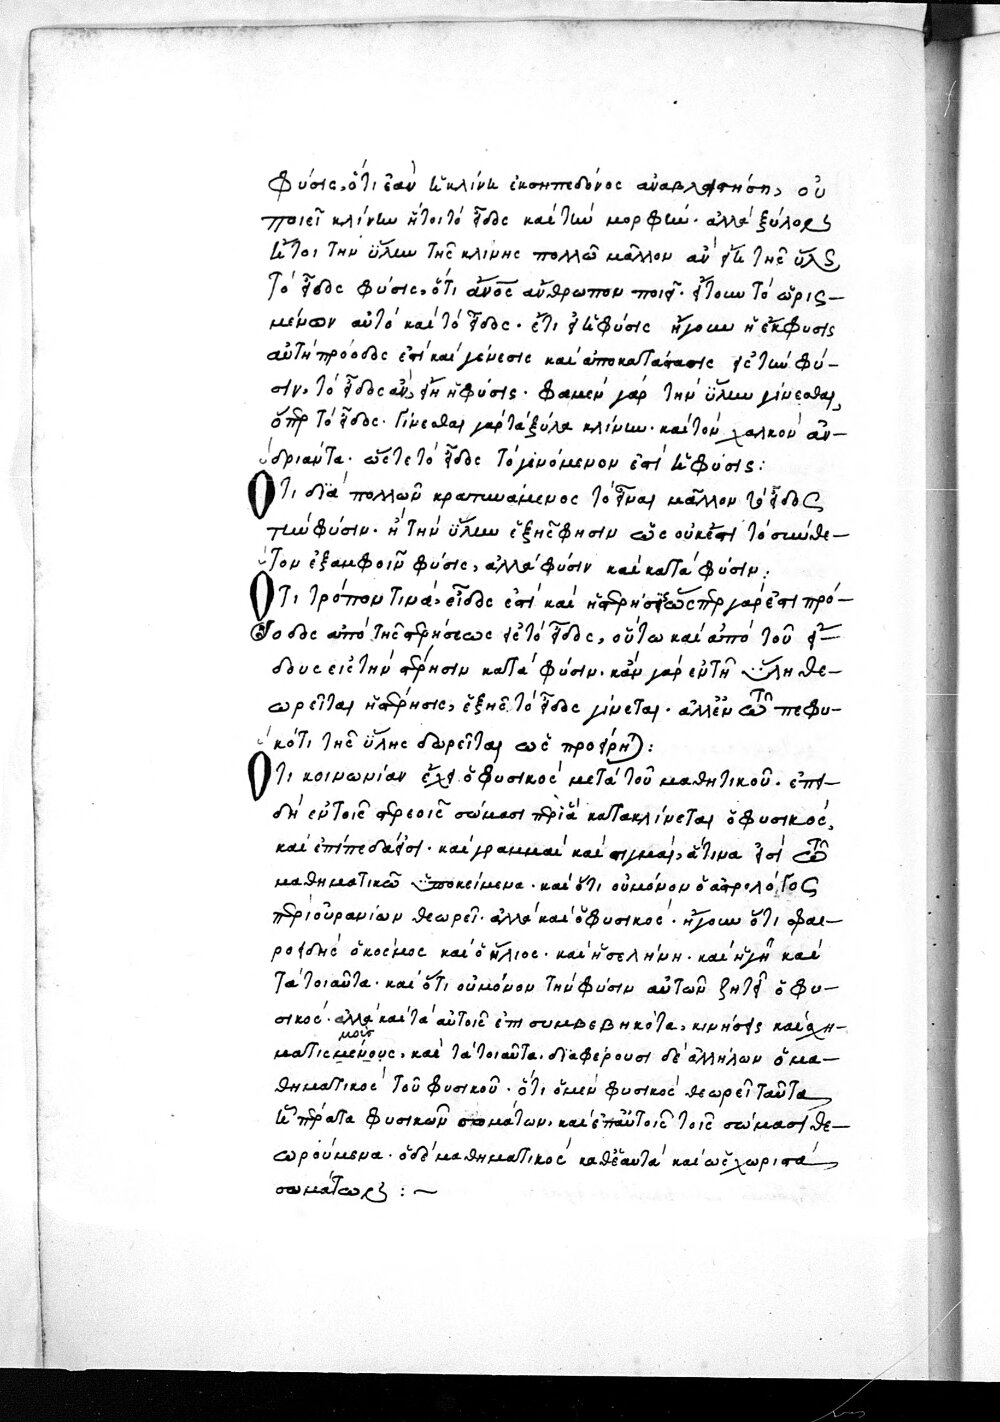 φύσις, ὅτι ἐὰν ἡ κλίνη ἐκσηπεδόνος ἀναβλαστήση, οὐ
ποιεῖ κλίνην ἤτοι τὸ εἶδος καὶ τὴν μορφήν· ἀλλὰ ξύλον
ἤτοι τὴν ὕλην τῆς κλίνης πολλῶ μᾶλλον ἂν εἴη τῆς ὕλης
τὸ εἶδος φύσις, ὅτι ἄνος ἄνθρωπον ποιεῖ· ἤτουν τὸ ὡρισ-
μένον αὐτὸ καὶ τὸ εἶδος· ἔτι εἰ ἡ φύσις ἤγουν ἡ ἔκφυσις
αὐτὴ πρόοδός ἐστι καὶ γένεσις καὶ ἀποκατάστασις εἰς τὴν φύ-
σιν, τὸ εἶδος ἂν εἴη ἡ φύσις· φαμὲν γὰρ τὴν ὕλην γίνεσθαι,
ὅπερ τὸ εἶδος· γίνεσθαι γὰρ τὰ ξύλα κλίνην· καὶ τὸν χαλκὸν ἀν-
δριάντα· ὥστε τὸ εἶδος τὸ γινόμενόν ἐστι ἡ φύσις:
Ὅτι διὰ πολλῶν κρατυνάμενος τὸ εἶναι μᾶλλον τὸ εἶδος
τὴν φύσιν· ἢ τὴν ὕλην ἑξῆς φησιν ὡς οὐκ ἔστι τὸ σύνθε-
τον ἐξ ἀμφοῖν φύσις, ἀλλὰ φύσιν καὶ κατὰ φύσιν:
Ὅτι τρόπον τινὰ, εἶδός ἐστι καὶ ἡ στέρησις ὥσπερ γάρ ἐστι πρό-
οδος ἀπὸ τῆς στερήσεως εἰς τὸ εἶδος, οὕτω καὶ ἀπὸ τοῦ εἴ-
δους εἰς τὴν στέρησιν κατὰ φύσιν· κἂν γὰρ ἐν τῆ ὕλη θε-
ωρεῖται ἡ στέρησις, ἑξῆς τὸ εἶδος γίνεται· ἀλλ' ἐν τῶ πεφυ-
κότι τῆς ὕλης θεωρεῖται ὡς προείρηται:
Ὅτι κοινωνίαν ἔχει ὁ φυσικὸς μετὰ τοῦ μαθητικοῦ· ἐπει-
δὴ ἐν τοῖς στερεοῖς σώμασι περὶ ἃ κατακλίνεται ὁ φυσικὸς,
καὶ ἐπίπεδά εἰσι· καὶ γραμμαὶ καὶ στιγμαὶ, ἅτινα εἰσὶ τῶ
μαθηματικῶ ὑποκείμενα· καὶ ὅτι οὐ μόνον ὁ ἀστρολόγος
περὶ οὐρανίων θεωρεῖ· ἀλλὰ καὶ ὁ φυσικὸς· ἤγουν ὅτι σφαι-
ροειδὴς ὁ κόσμος καὶ ὁ ἥλιος· καὶ ἡ σελήνη· καὶ ἡ γῆ καὶ
τὰ τοιαῦτα· καὶ ὅτι οὐ μόνον τὴν φύσιν αὐτῶν ζητεῖ ὁ φυ-
σικὸς· ἀλλὰ καὶ τὰ αὐτοῖς ἐπισυμβεβηκότα, κινήσεις καὶ σχη-
μοὺς
ματισμένους, καὶ τὰ τοιαῦτα· διαφέρουσι δὲ ἀλλήλων ὁ μα-
θηματικὸς τοῦ φυσικοῦ· ὅτι ὁ μὲν φυσικὸς θεωρεῖ ταῦτα
ἢ πέρατα φυσικῶν σωμάτων, καὶ ἐπ' αὐτοῖς τοῖς σώμασι θε-
ωρούμενα· ὁ δὲ μαθηματικὸς καθ' ἑαυτὰ καὶ ὡς χωριστὰ
σωμάτων:~